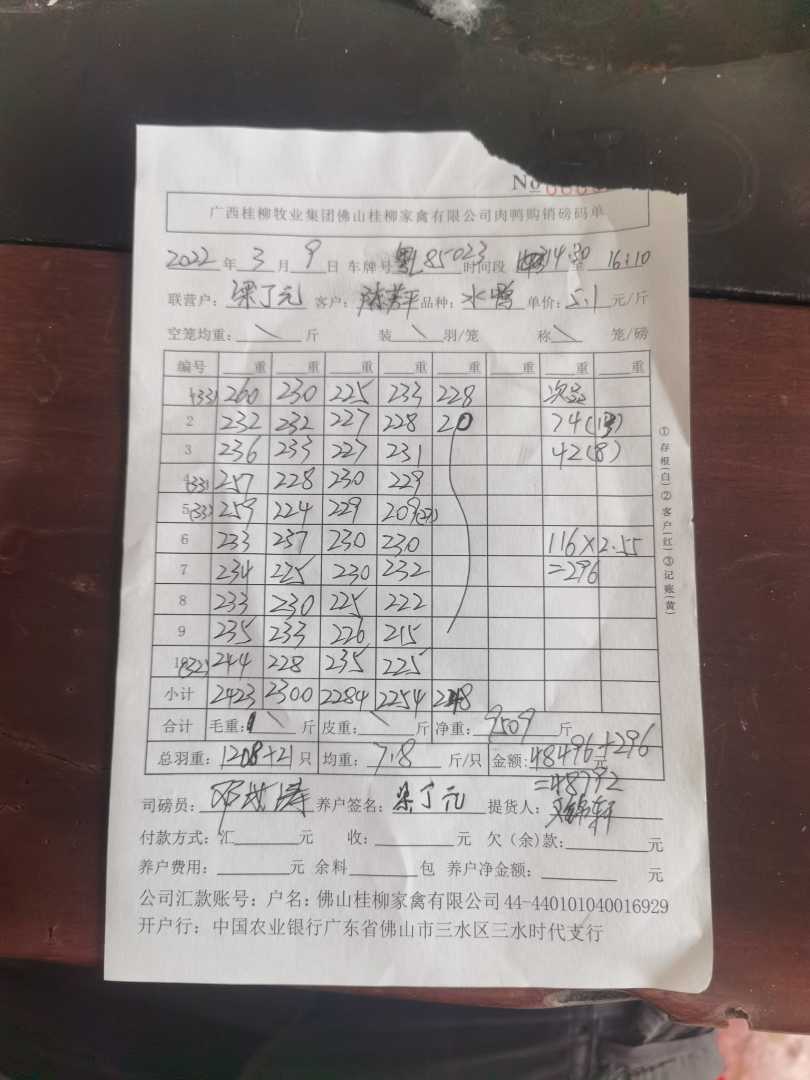 No
广西桂柳牧业集团佛山桂柳家禽有限公司肉鸭购销磅码单
2022年3月9日 车牌号 85023 时间段 14:30 至 16:10
联营户: 梁了元 客户: 品种: 水鸭 单价: 5.1元/斤
空笼均重: \ 斤 装 \ 羽/笼 称 \ 笼/磅
编号 重 重 重 重 重 重 重 重
(33) 260 230 225 233 228 次品
2 232 232 227 228 20 74(13)
3 236 233 227 231 42(8)
4(33) 257 228 230 229
5(33) 259 224 229 209
6 233 237 230 230 116×2.55
7 234 225 230 232 =296
8 233 230 225 222
9 235 233 226 215
10(32) 244 228 235 225
小计 2423 2300 2284 2254 248
合计 毛重: \ 斤 皮重: \ 斤 净重: 9509 斤
总羽重: 1208+21只 均重: 7.8 斤/只 金额: 48496+296元
=48792
司磅员: 养户签名: 梁了元 提货人:
付款方式: 汇 元 收: 元 欠(余)款: 元
养户费用: 元 余料 包 养户净金额: 元
公司汇款账号: 户名: 佛山桂柳家禽有限公司 44-440101040016929
开户行: 中国农业银行广东省佛山市三水区三水时代支行
①存根(白)②客户(红)③记账(黄)